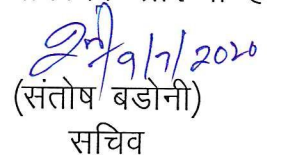 9/7/2020
(संतोष बडोनी)
सचिव